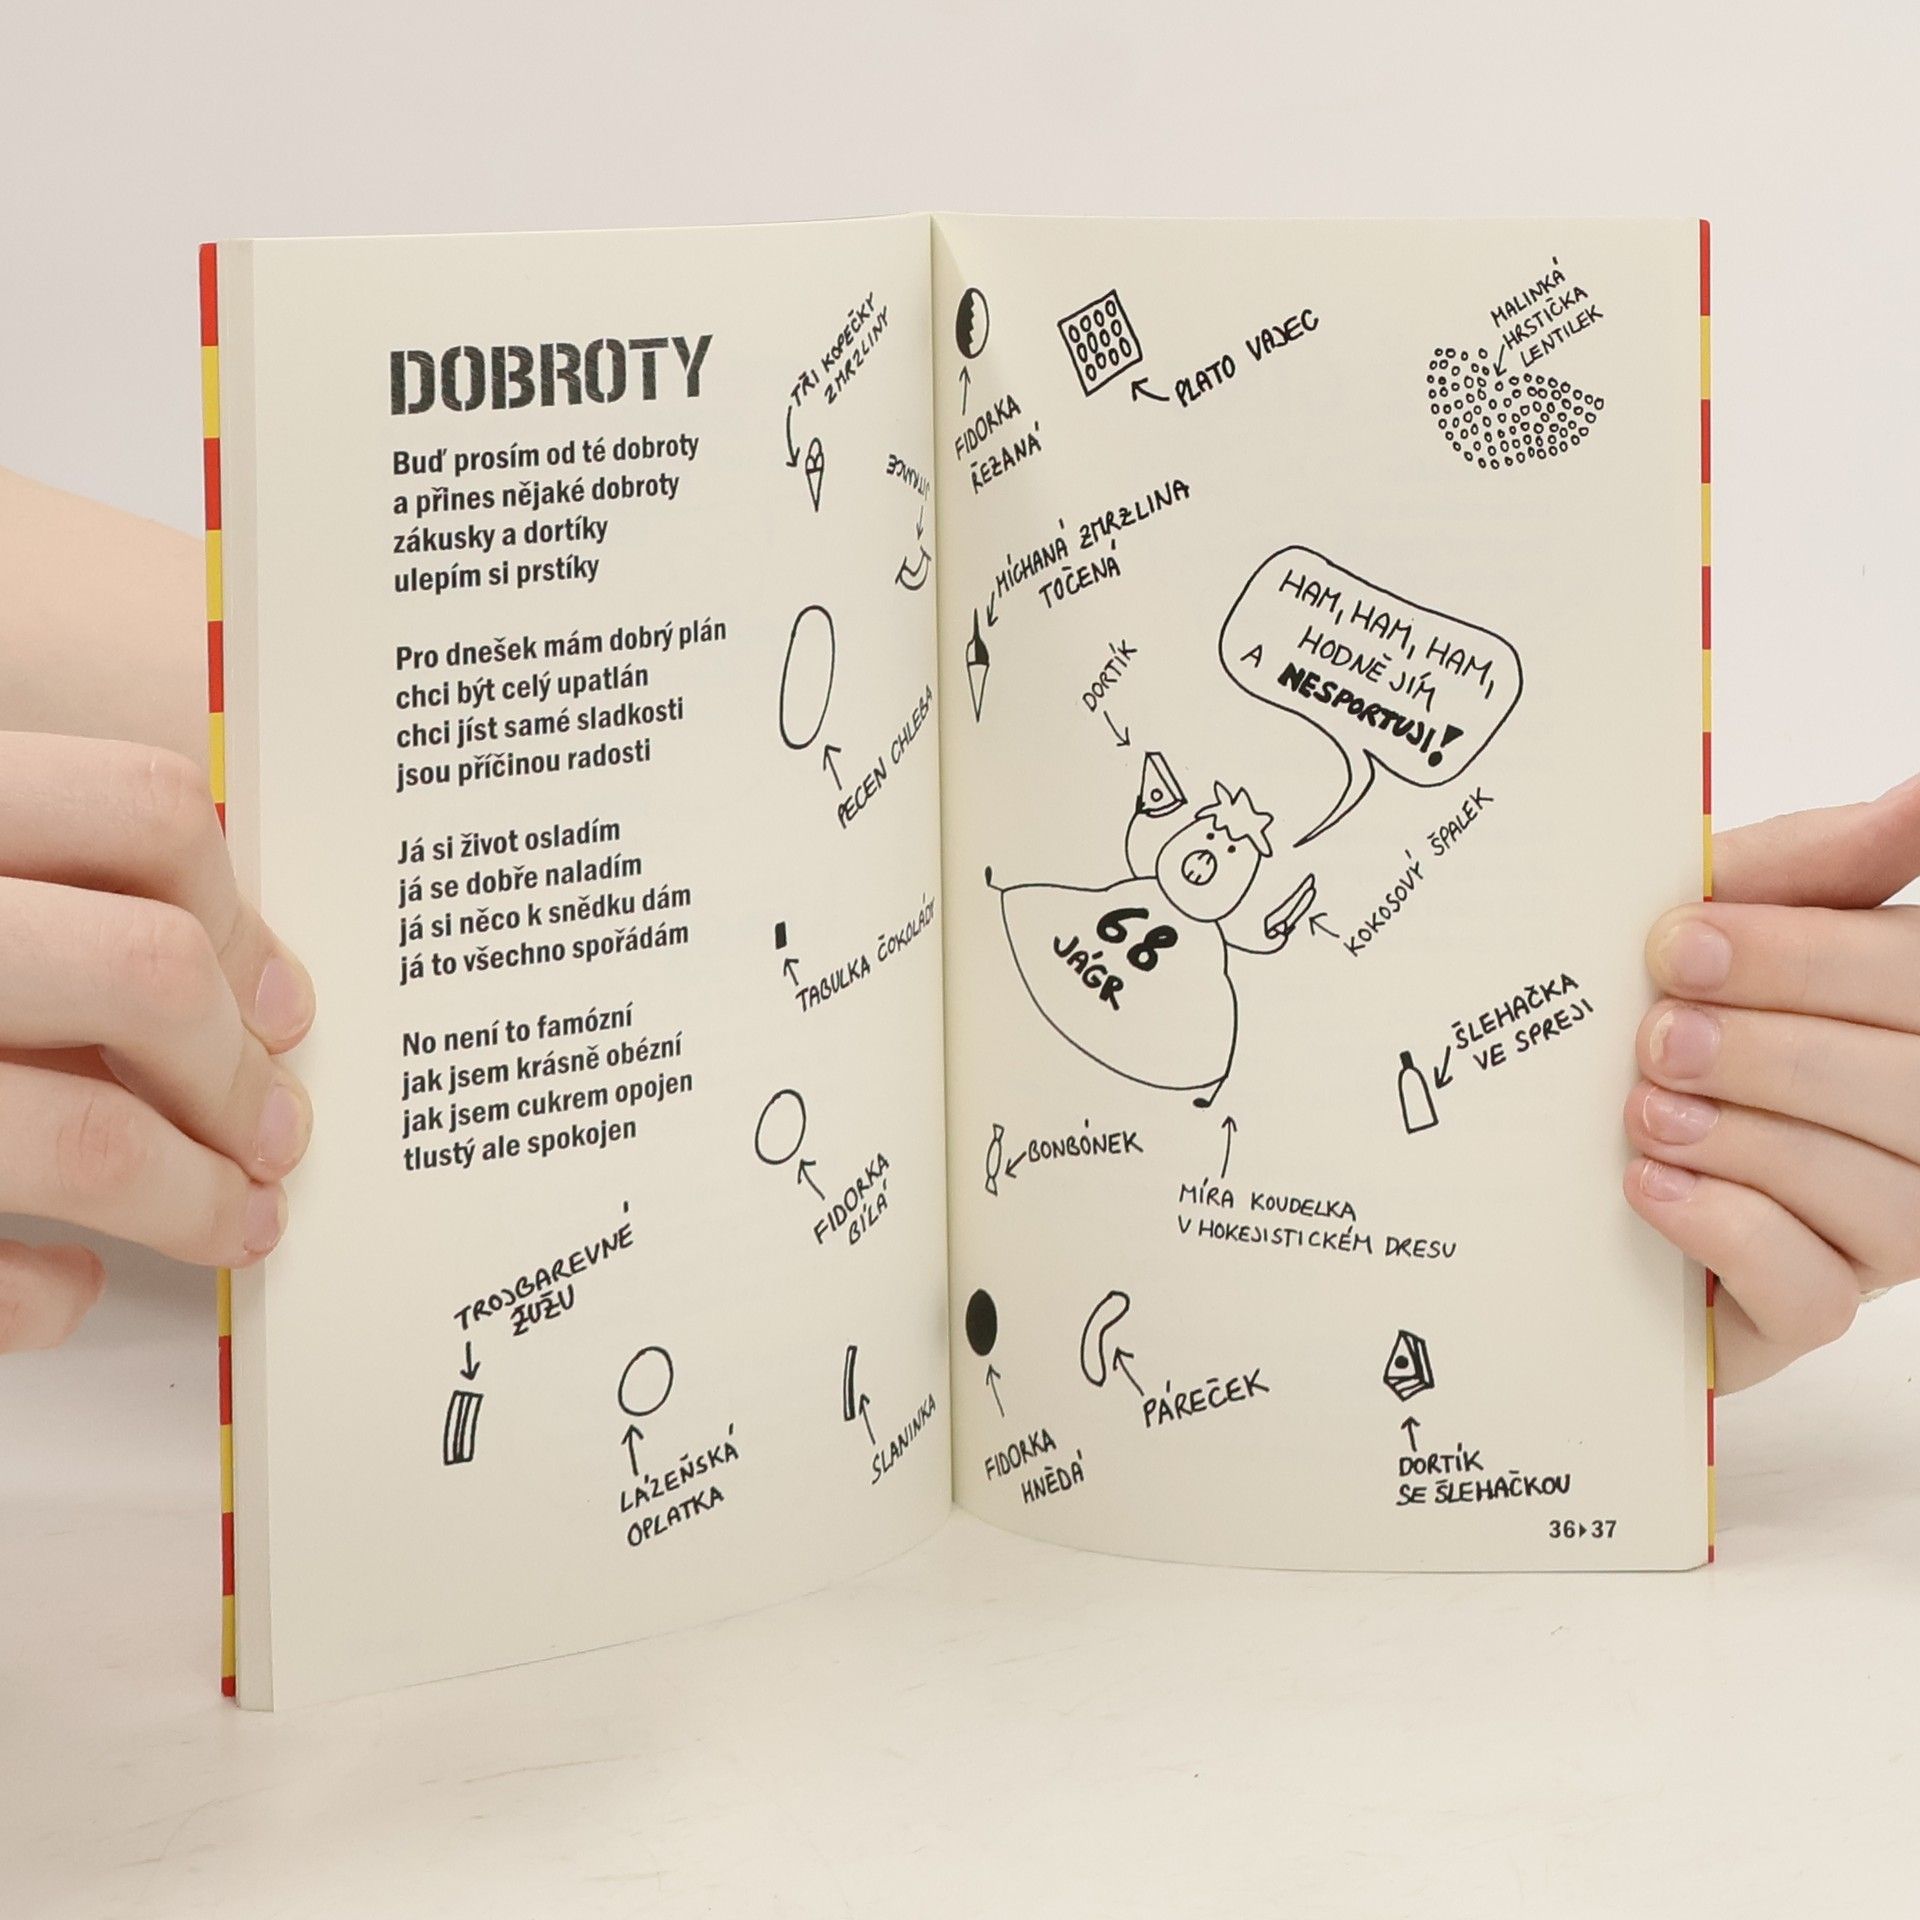 DOBROTY
Buď prosím od té dobroty
a přines nějaké dobroty
zákusky a dortíky
ulepím si prstíky
Pro dnešek mám dobrý plán
chci být celý upatlán
chci jíst samé sladkosti
jsou příčinou radosti
Já si život osladím
já se dobře naladím
já si něco k snědku dám
já to všechno spořádám
No není to famózní
jak jsem krásně obézní
jak jsem cukrem opojen
tlustý ale spokojen
TŘI KOPEČKY
ZMRZLINY
PECEN CHLEBA
TABULKA ČOKOLÁDY
FIDORKA
BÍLÁ
TROJBAREVNÉ
ŽUŽU
LÁZEŇSKÁ
OPLATKA
SLANINKA
FIDORKA
ŘEZANÁ
PLATO VAJEC
MALINKÁ
HRSTIČKA
LENTILEK
MÍCHANÁ ZMRZLINA
TOČENÁ
DORTÍK
HAM, HAM, HAM,
HODNĚ JÍM
A NESPORTUJI!
68
JÁGR
KOKOSOVÝ ŠPALEK
ŠLEHAČKA
VE SPREJI
BONBÓNEK
MÍRA KOUDELKA
V HOKEJISTICKÉM DRESU
FIDORKA
HNĚDÁ
PÁREČEK
DORTÍK
SE ŠLEHAČKOU
36▸37